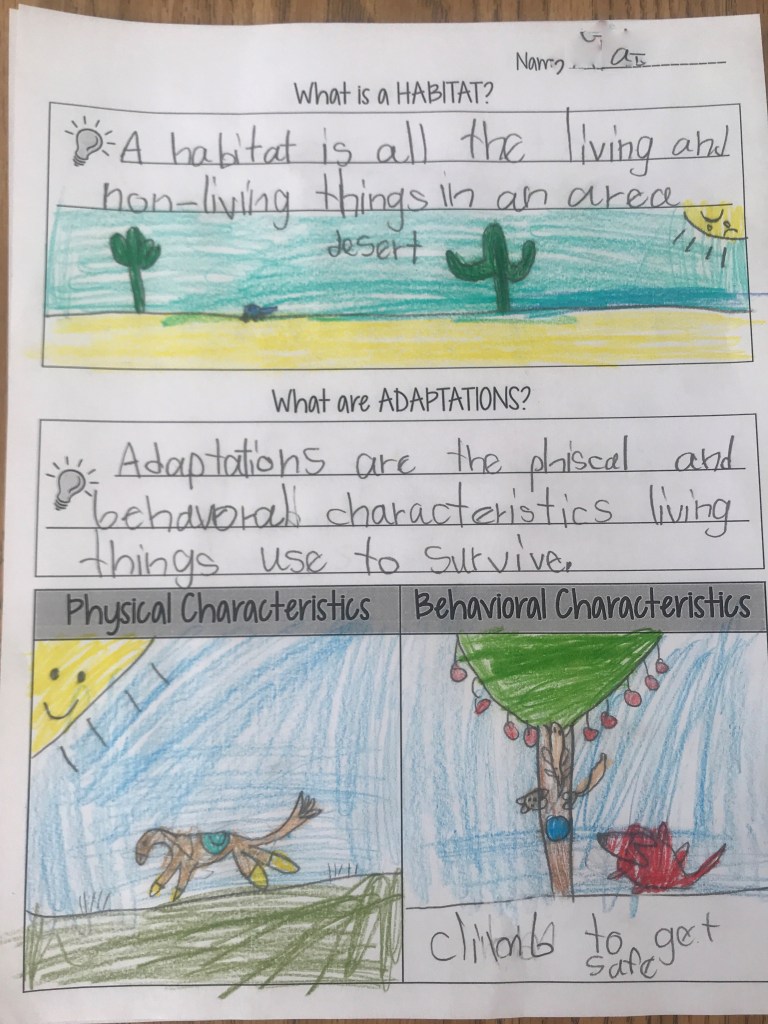 Name
What is a HABITAT?
A habitat is all the living and
non-living things in an area
desert
What are ADAPTATIONS?
Adaptations are the phiscal and
behavoral characteristics living
things use to survive.
Physical Characteristics
Behavioral Characteristics
to get
safe